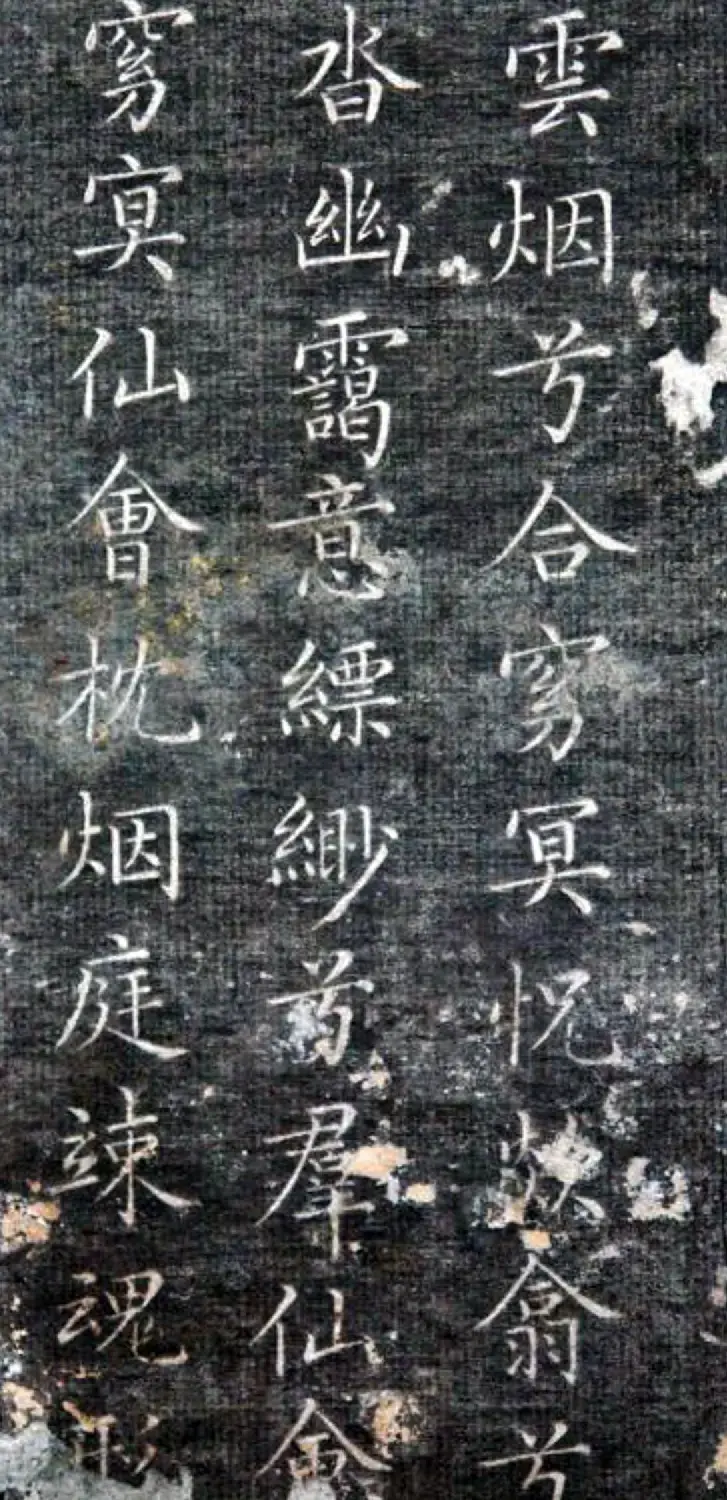 雲烟兮合窈冥怳欻翕兮
沓幽靄意縹緲兮羣仙會
窈冥仙會枕烟庭竦魂形